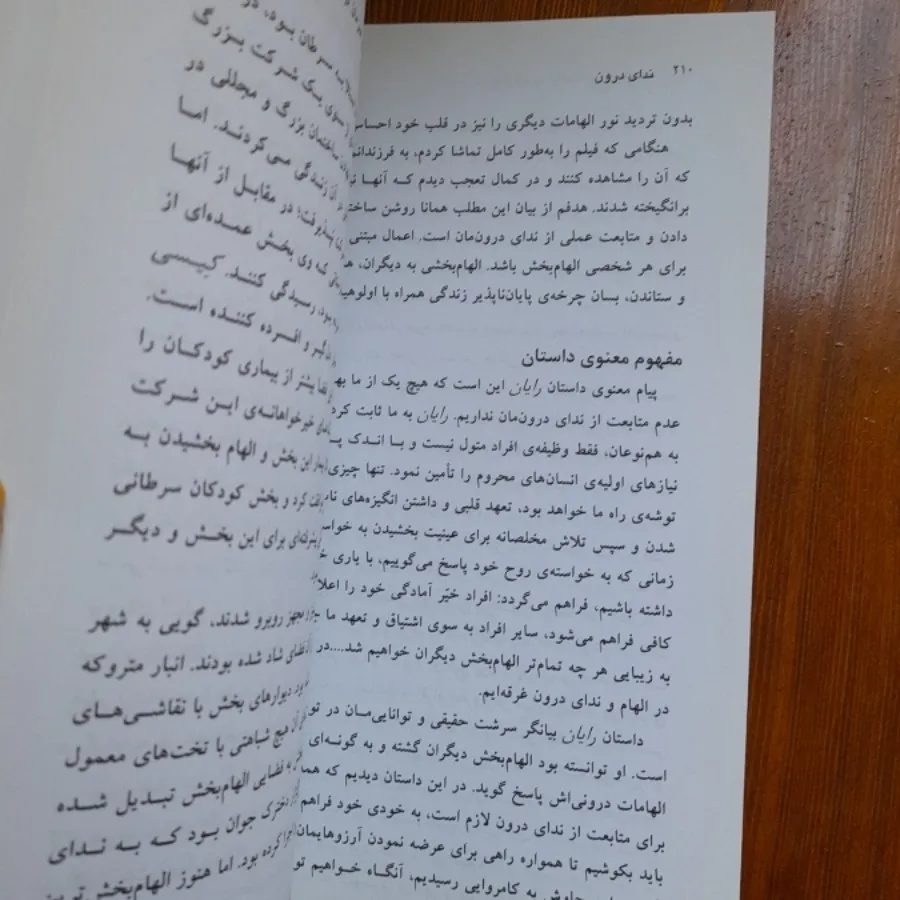 ۲۱۰ ندای درون
بدون تردید نور الهامات دیگری را نیز در قلب خود احساس
هنگامی که فیلم را به‌طور کامل تماشا کردم، به
که آن را مشاهده کنند و در کمال تعجب دیدم که آنها
برانگیخته شدند. هدفم از بیان این مطلب همانا روشن
دادن و متابعت عملی از ندای درون‌مان است. اعمال مبتنی
برای هر شخصی الهام‌بخش باشد. الهام‌بخشی به دیگران،
و ستاندن، بسان چرخه‌ی پایان‌ناپذیر زندگی همراه با
مفهوم معنوی داستان
پیام معنوی داستان رایان این است که هیچ یک از ما
عدم متابعت از ندای درون‌مان نداریم. رایان به ما ثابت
به هم‌نوعان، فقط وظیفه‌ی افراد متول نیست و با اندک
نیازهای اولیه‌ی انسان‌های محروم را تأمین نمود. تنها چیزی
توشه‌ی راه ما خواهد بود، تعهد قلبی و داشتن انگیزه‌های
شدن و سپس تلاش مخلصانه برای عینیت بخشیدن به
زمانی که به خواسته‌ی روح خود پاسخ می‌گوییم، با یاری
داشته باشیم، فراهم می‌گردد: افراد خیّر آمادگی خود را
کافی فراهم می‌شود، سایر افراد به سوی اشتیاق و تعهد ما
به زیبایی هر چه تمام‌تر الهام‌بخش دیگران خواهیم شد....در
در الهام و ندای درون غرقه‌ایم.
داستان رایان بیانگر سرشت حقیقی و توانایی‌مان در
است. او توانسته بود الهام‌بخش دیگران گشته و به گونه‌ای
الهامات درونی‌اش پاسخ گوید. در این داستان دیدیم که
برای متابعت از ندای درون لازم است، به خودی خود فراهم
باید بکوشیم تا همواره راهی برای عرضه نمودن آرزوهایمان
به کامروایی رسیدیم، آنگاه خواهیم
سرطان بود، در
سوی یک شرکت بزرگ
ساختمان بزرگ و مجللی در
آن زندگی می‌کردند. اما
در مقابل از آنها
که وی بخش عمده‌ای از
بود، رسیدگی کنند. کیسی
و افسرده کننده است.
بیشتر از بیماری کودکان را
خیرخواهانه‌ی این شرکت
این بخش و الهام بخشیدن به
کرد و بخش کودکان سرطانی
برای این بخش و دیگر
مجهز روبرو شدند، گویی به شهر
شاد شده بودند. انبار متروکه
دیوارهای بخش با نقاشی‌های
هیچ شباهتی با تخت‌های معمول
به فضایی الهام‌بخش تبدیل شده
دخترک جوان بود که به ندای
کرده بود. اما هنوز